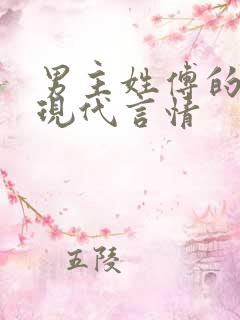 男主姓傅的
現代言情
五陵